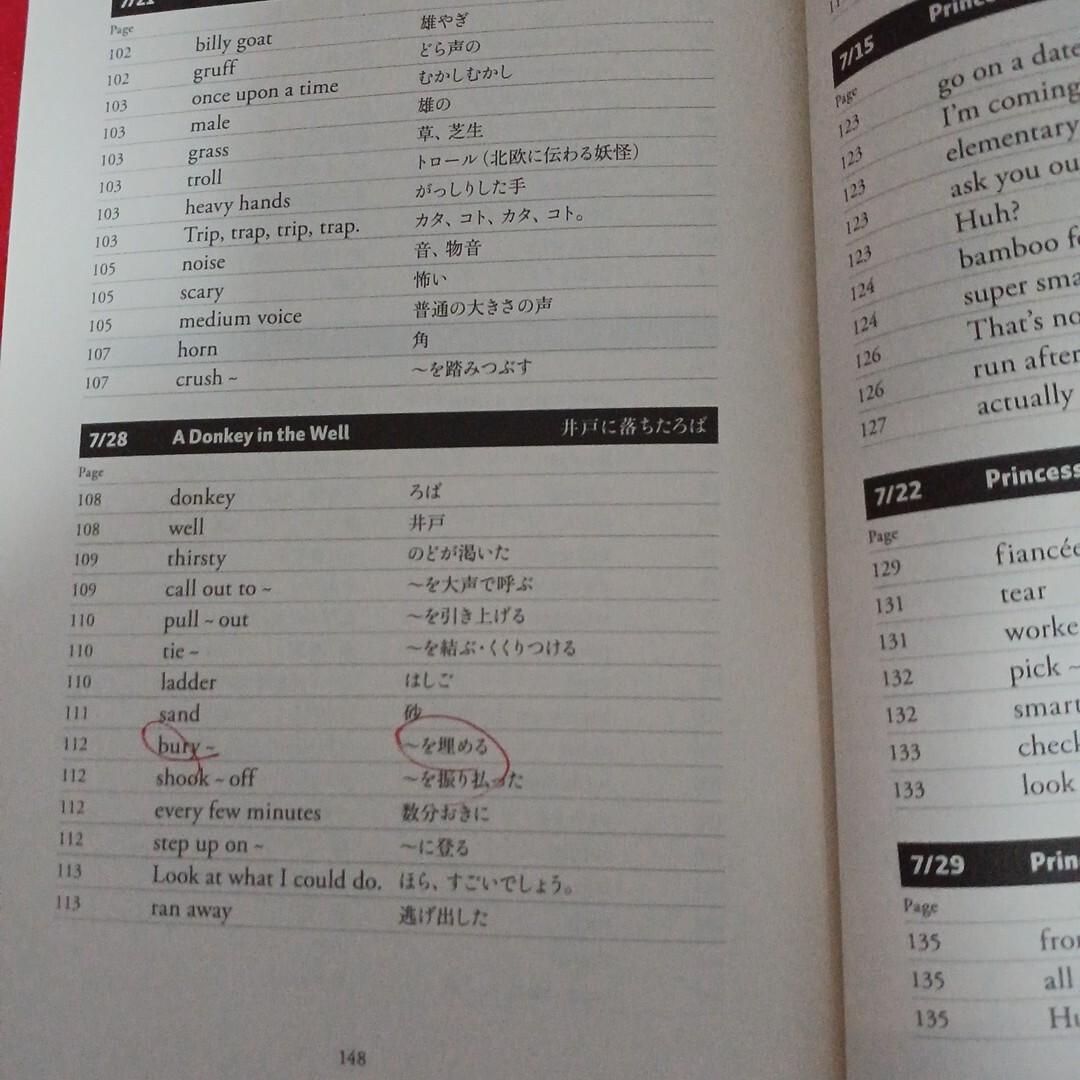 7/21
Page
102 billy goat 雄やぎ
102 gruff どら声の
103 once upon a time むかしむかし
103 male 雄の
103 grass 草、芝生
103 troll トロール（北欧に伝わる妖怪）
103 heavy hands がっしりした手
103 Trip, trap, trip, trap. カタ、コト、カタ、コト。
105 noise 音、物音
105 scary 怖い
105 medium voice 普通の大きさの声
107 horn 角
107 crush ~ ～を踏みつぶす
7/28 A Donkey in the Well 井戸に落ちたろば
Page
108 donkey ろば
108 well 井戸
109 thirsty のどが渇いた
109 call out to ~ ～を大声で呼ぶ
110 pull ~ out ～を引き上げる
110 tie ~ ～を結ぶ・くくりつける
110 ladder はしご
111 sand 砂
112 bury ~ ～を埋める
112 shook ~ off ～を振り払った
112 every few minutes 数分おきに
112 step up on ~ ～に登る
113 Look at what I could do. ほら、すごいでしょう。
113 ran away 逃げ出した
148
7/15
Page
123 go on a date
123 I'm coming
123 elementary
123 ask you
123 Huh?
124 bamboo
124 super
126 That's
126 run after
127 actually
7/22 Princess
Page
129
131 tear
131
132 pick ~
132 smart
133
133 look
7/29
Page
135
135 all
135